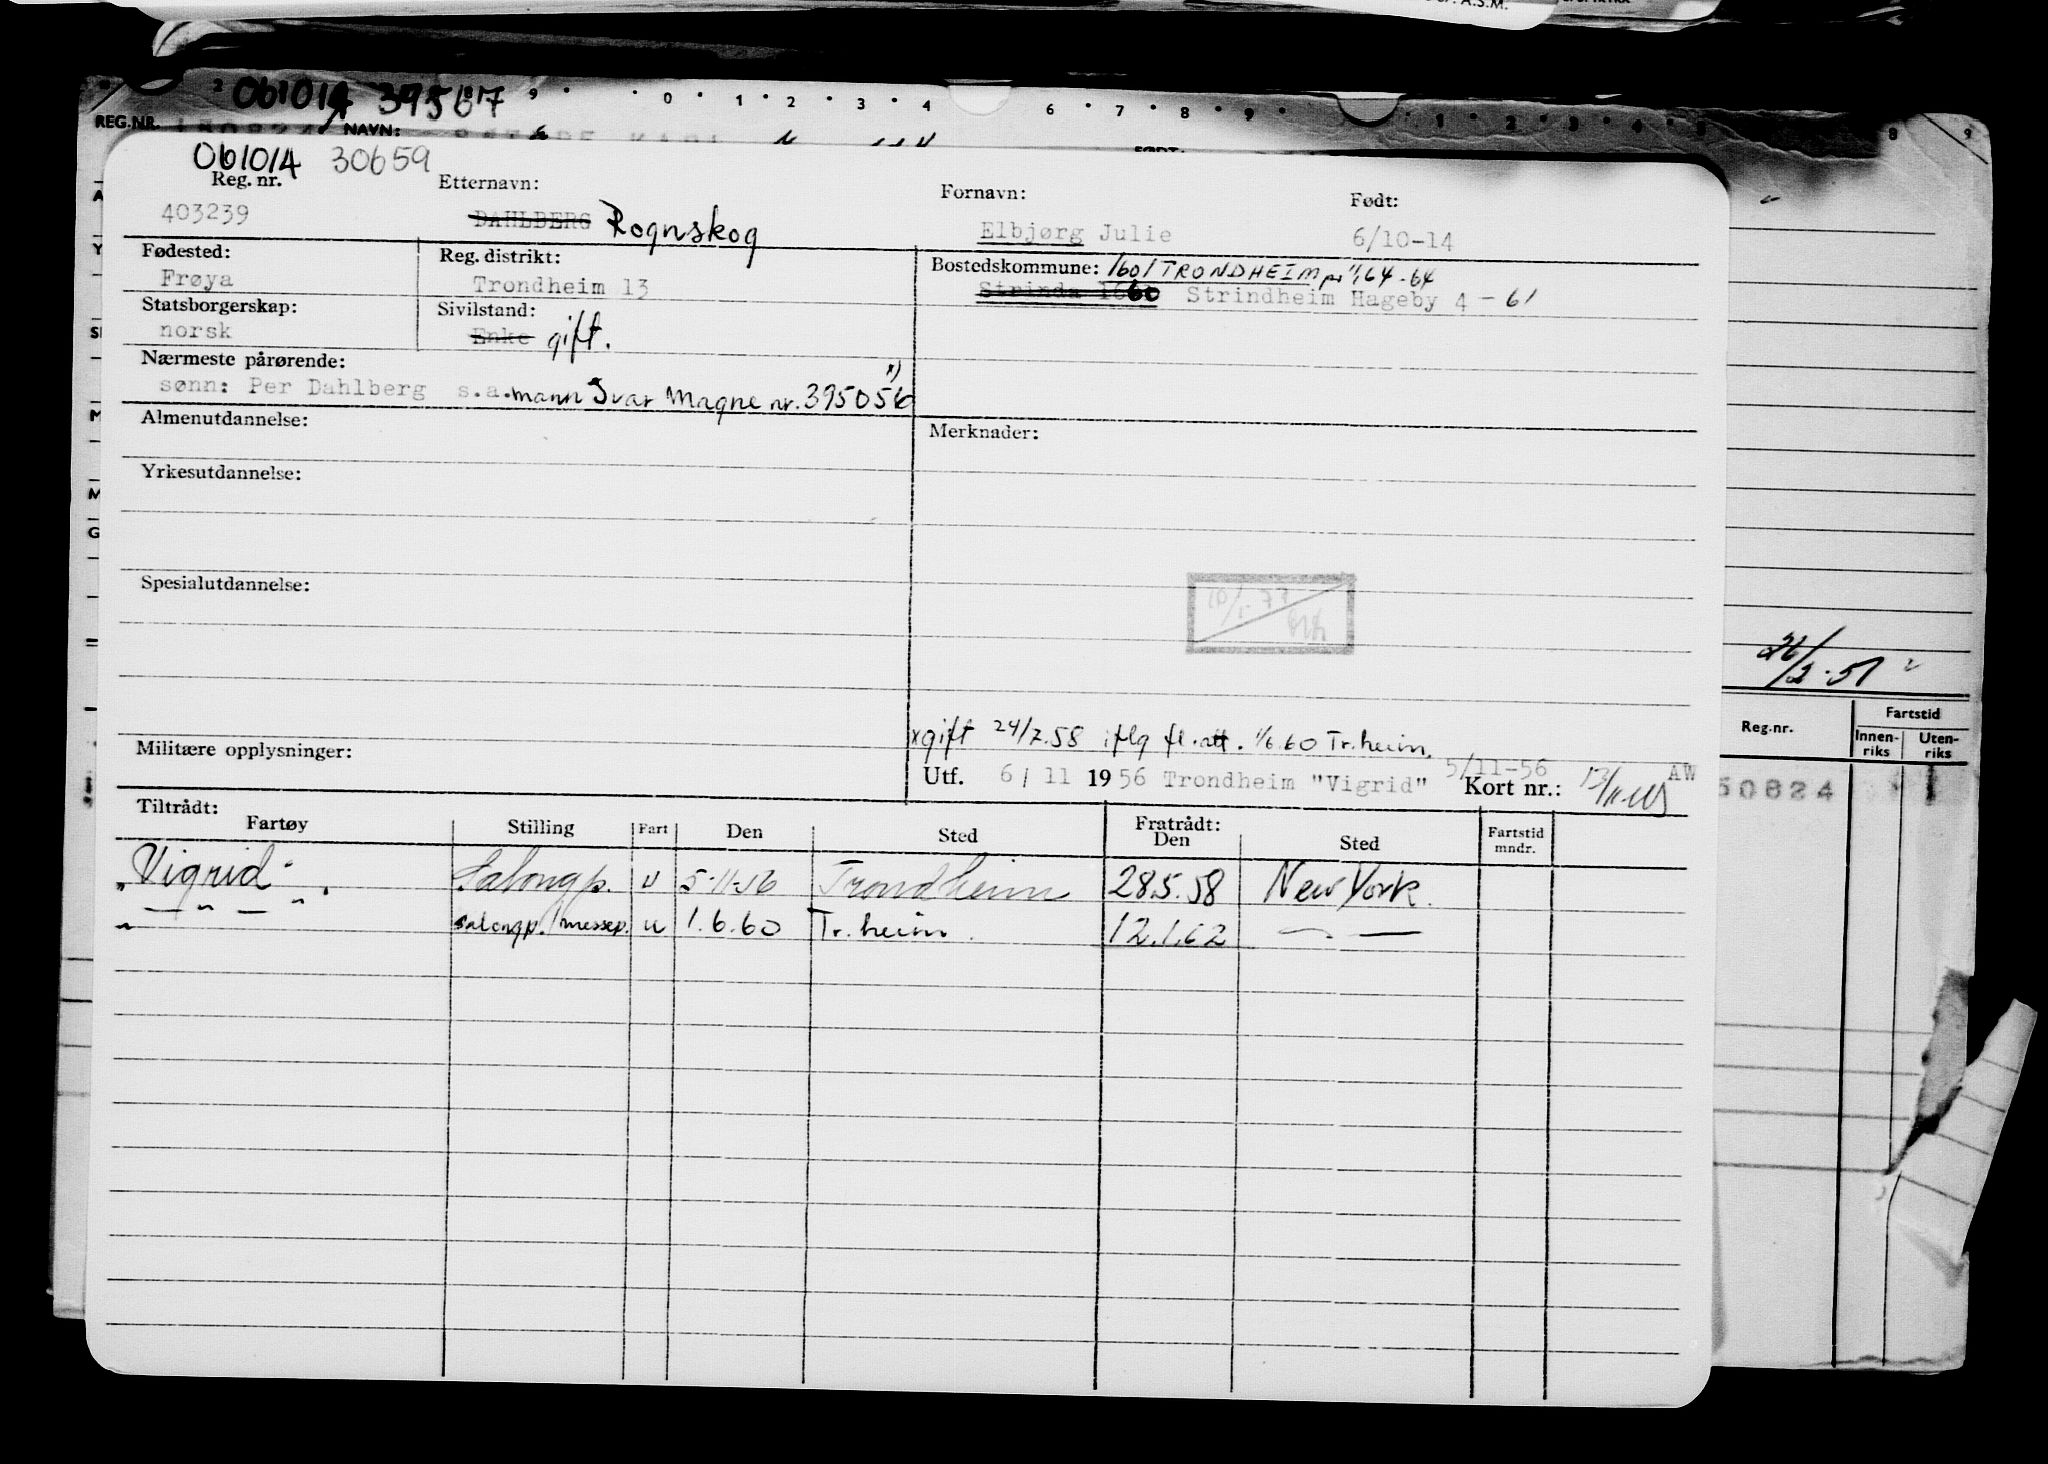 061014 39567
REG.NR. NAVN:
061014 30659
Reg. nr. Etternavn: Fornavn: Født:
403239 DAHLBERG Rognskog Elbjørg Julie 6/10-14
Fødested: Reg. distrikt: Bostedskommune: 1601 TRONDHEIM pr 1/1 64-64
Frøya Trondheim 13 Strinda 1660 Strindheim Hageby 4 - 61
Statsborgerskap: Sivilstand:
norsk Enke gift.
Nærmeste pårørende: x)
sønn: Per Dahlberg s.a. mann Ivar Magne nr. 395056
Almenutdannelse: Merknader:
Yrkesutdannelse:
Spesialutdannelse:
26/2-51
x gift 24/2.58 iflg fl.att. 1/6.60 Tr.heim.
Militære opplysninger:
Utf. 6/11 1956 Trondheim "Vigrid" 5/11-56 Kort nr.: 13/11 AW
Tiltrådt: Fratrådt:
Fartøy Stilling Fart Den Sted Den Sted Fartstid mndr.
"Vigrid". Salongp. u 5-11-56 Trondheim 28.5.58 New York.
" — " — " salongp./messep. u 1.6.60 Tr.heim. 12.1.62 — " —
Reg.nr. Fartstid
Innenriks Utenriks
50824